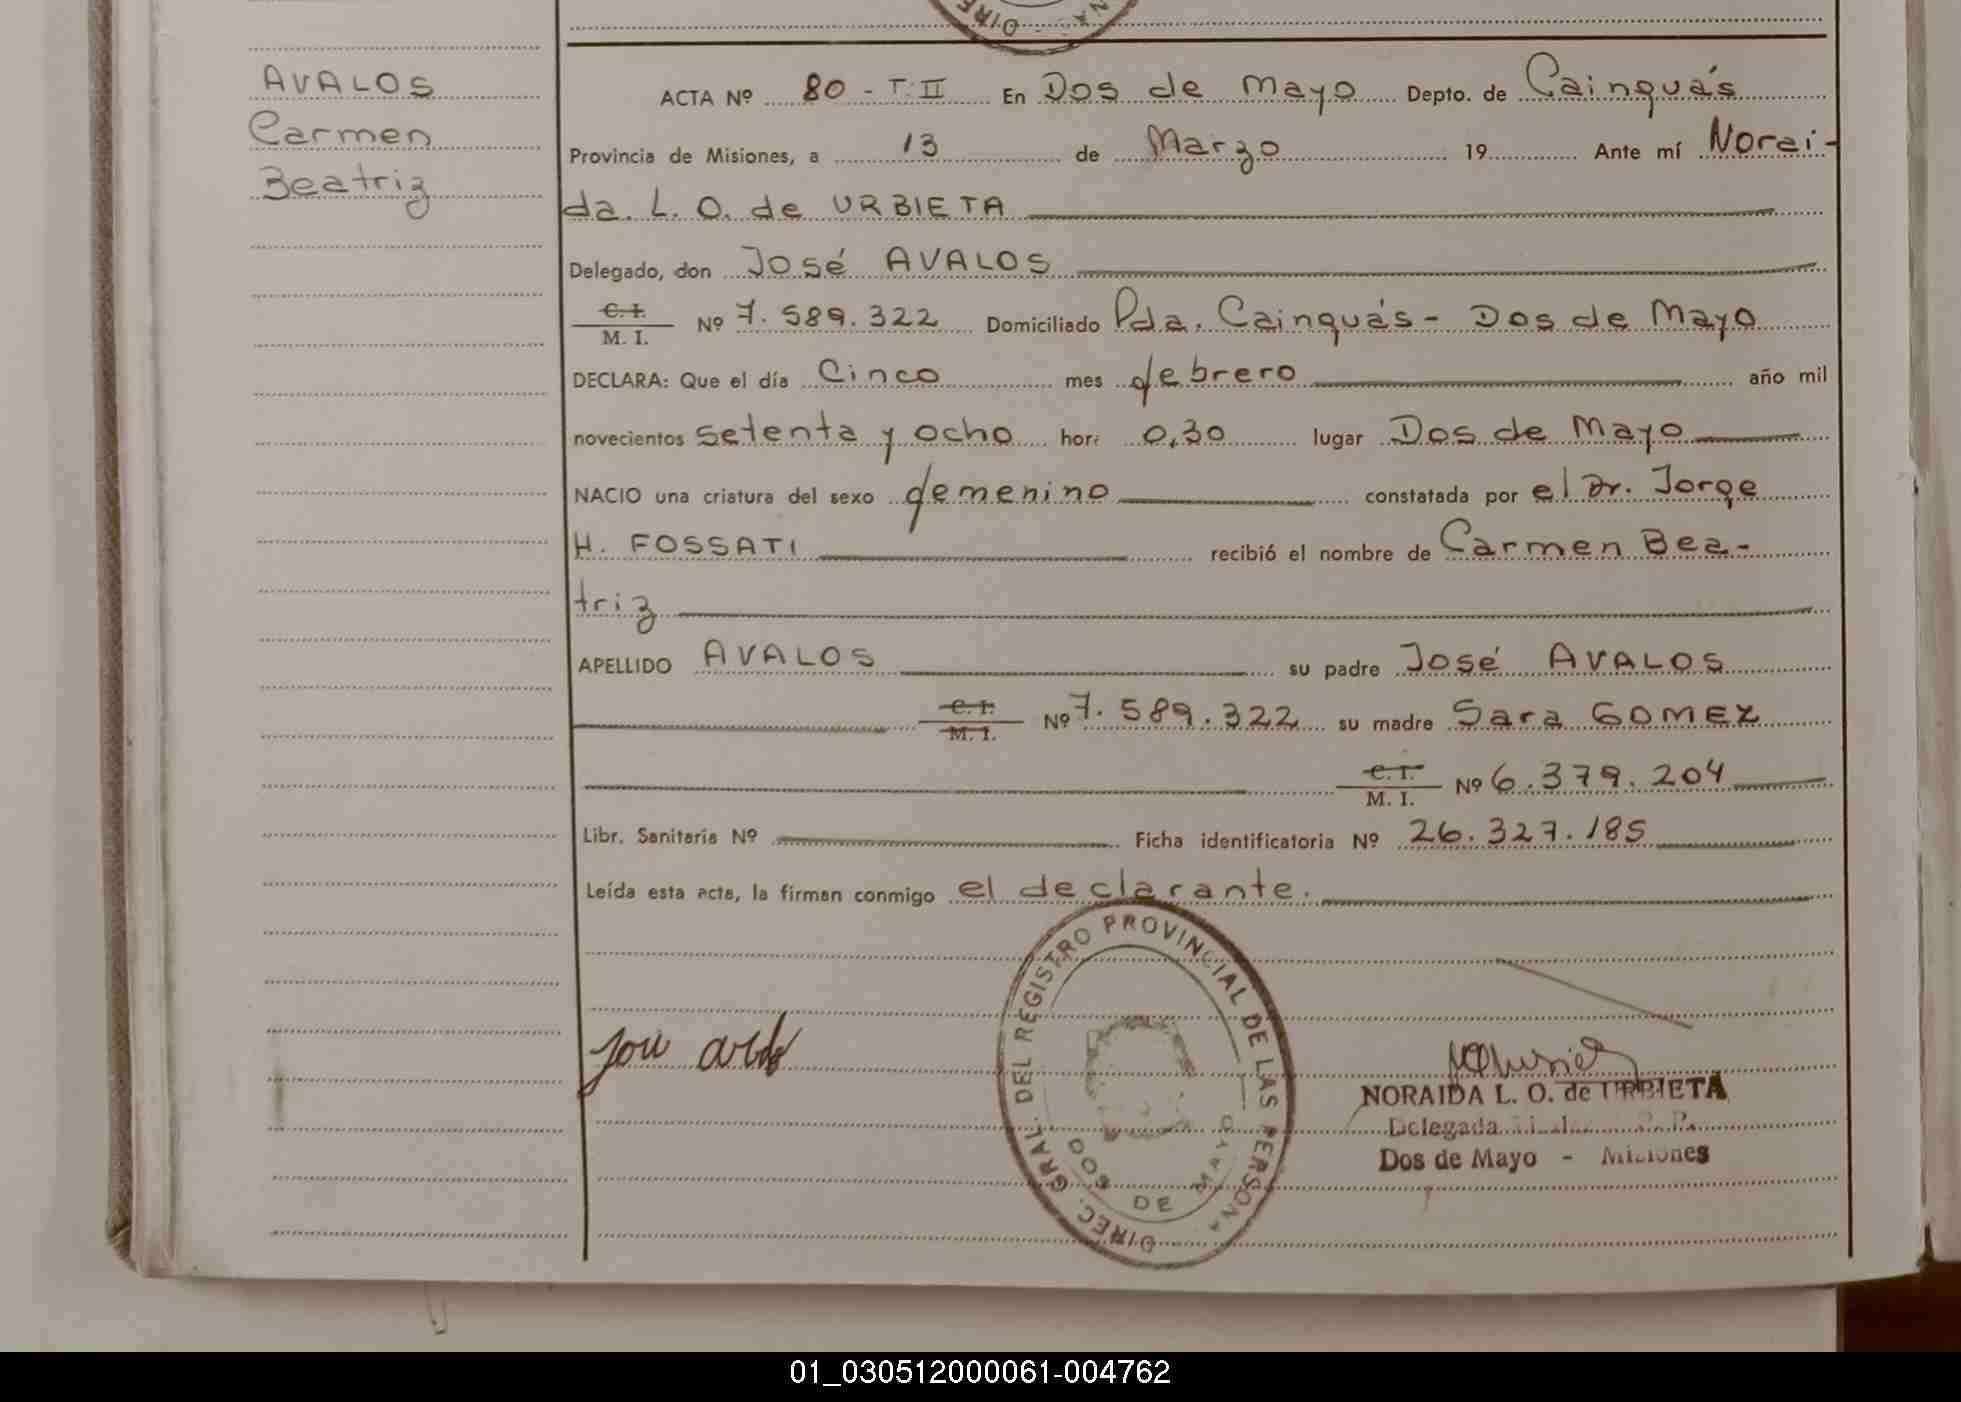 AVALOS
Carmen
Beatriz
ACTA Nº 80 - T. II En Dos de Mayo Depto. de Cainguás
Provincia de Misiones, a 13 de Marzo 19 Ante mí Norai-
da. L. O. de URBIETA
Delegado, don José AVALOS
C. I.
M. I. Nº 7.589.322 Domiciliado Pda. Cainguás - Dos de Mayo
DECLARA: Que el día Cinco mes febrero año mil
novecientos setenta y ocho hora 0,30 lugar Dos de Mayo
NACIO una criatura del sexo femenino constatada por el Dr. Jorge
H. FOSSATI recibió el nombre de Carmen Bea-
triz
APELLIDO AVALOS su padre José AVALOS
C. I.
M. I. Nº 7.589.322 su madre Sara GOMEZ
C. I.
M. I. Nº 6.379.204
Libr. Sanitaria Nº Ficha identificatoria Nº 26.327.185
Leída esta acta, la firman conmigo el declarante.
DIREC. GRAL. DEL REGISTRO PROVINCIAL DE LAS PERSONA
DOS DE MAYO
NORAIDA L. O. de URBIETA
Delegada
Dos de Mayo - Misiones
01_030512000061-004762